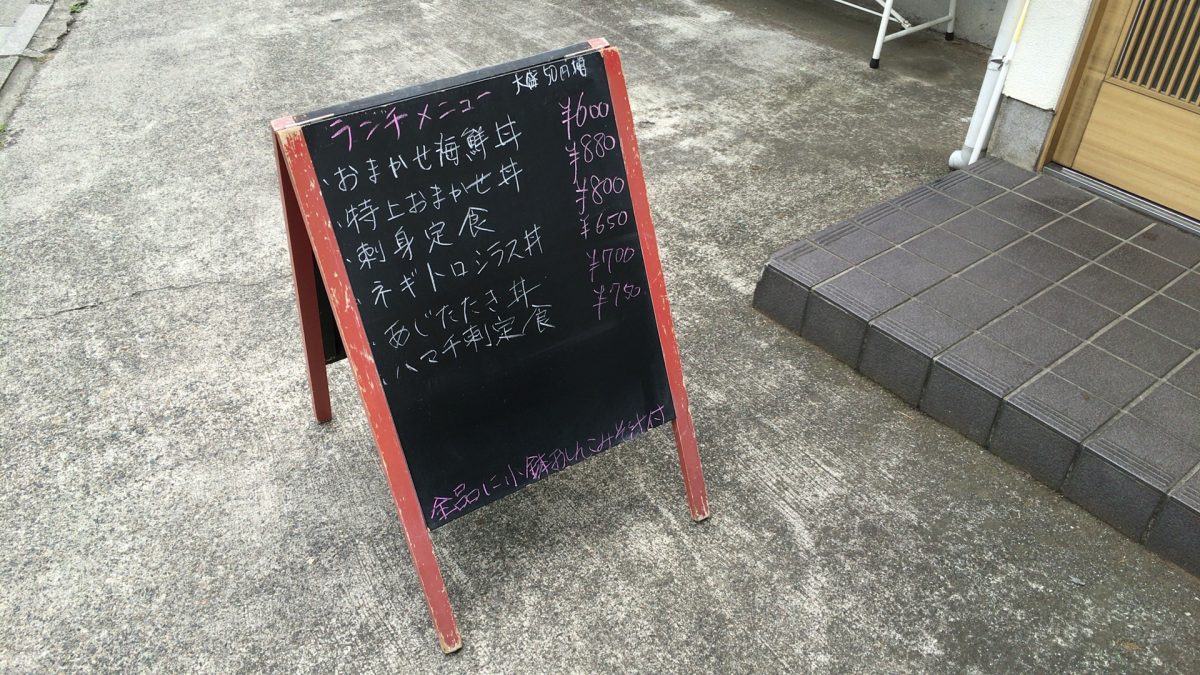 大盛50円増
ランチメニュー
・おまかせ海鮮丼 ¥600
・特上おまかせ丼 ¥880
・刺身定食 ¥800
・ネギトロシラス丼 ¥650
・あじたたき丼 ¥700
・ハマチ刺定食 ¥750
全品に小鉢おしんこみそ汁付